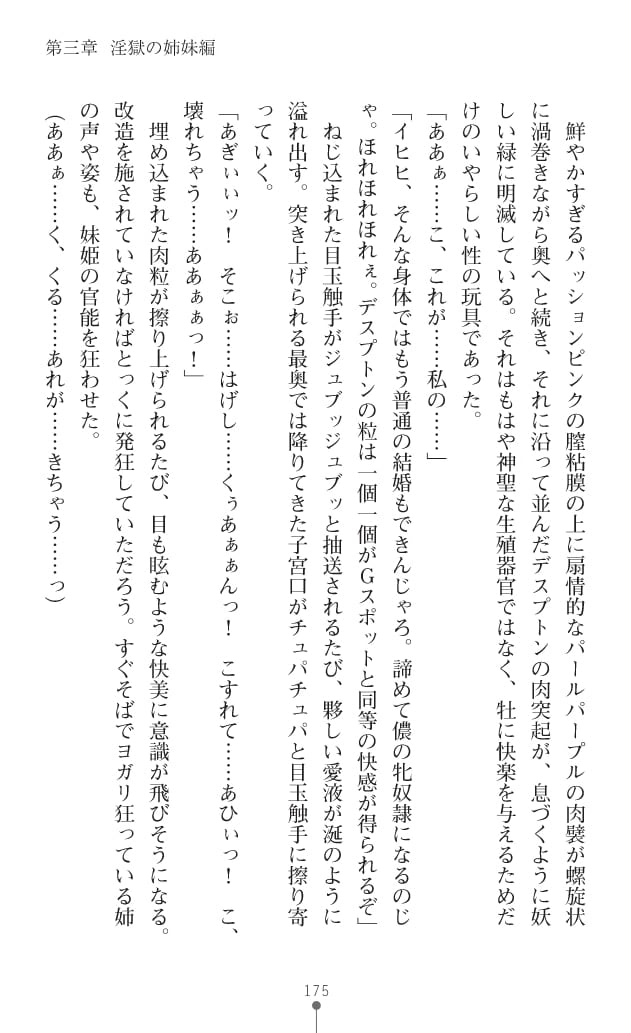 第三章　淫獄の姉妹編
鮮やかすぎるパッションピンクの膣粘膜の上に扇情的なパールパープルの肉襞が螺旋状
に渦巻きながら奥へと続き、それに沿って並んだデスプトンの肉突起が、息づくように妖
しい緑に明滅している。それはもはや神聖な生殖器官ではなく、牡に快楽を与えるためだ
けのいやらしい性の玩具であった。
「ああぁ……こ、これが……私の……」
「イヒヒ、そんな身体ではもう普通の結婚もできんじゃろ。諦めて儂の牝奴隷になるのじ
ゃ。ほれほれほれぇ。デスプトンの粒は一個一個がGスポットと同等の快感が得られるぞ」
ねじ込まれた目玉触手がジュブッジュブッと抽送されるたび、夥しい愛液が涎のように
溢れ出す。突き上げられる最奥では降りてきた子宮口がチュパチュパと目玉触手に擦り寄
っていく。
「あぎぃぃッ！　そこぉ……はげし……くぅあぁぁんっ！　こすれて……あひぃっ！　こ、
壊れちゃう……ああぁぁっ！」
埋め込まれた肉粒が擦り上げられるたび、目も眩むような快美に意識が飛びそうになる。
改造を施されていなければとっくに発狂していただろう。すぐそばでヨガリ狂っている姉
の声や姿も、妹姫の官能を狂わせた。
（ああぁ……く、くる……あれが……きちゃう……っ）
175